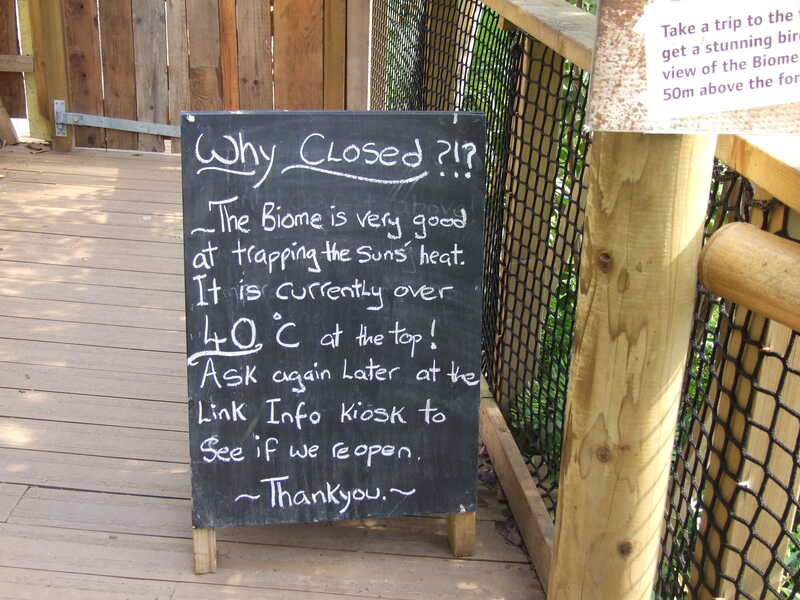 Why Closed ?!?
~The Biome is very good
at trapping the Suns' heat.
It is currently over
40°C at the top!
Ask again Later at the
Link Info Kiosk to
See if we reopen.
~Thankyou.~
Take a trip to the
get a stunning bir
view of the Biome
50m above the for